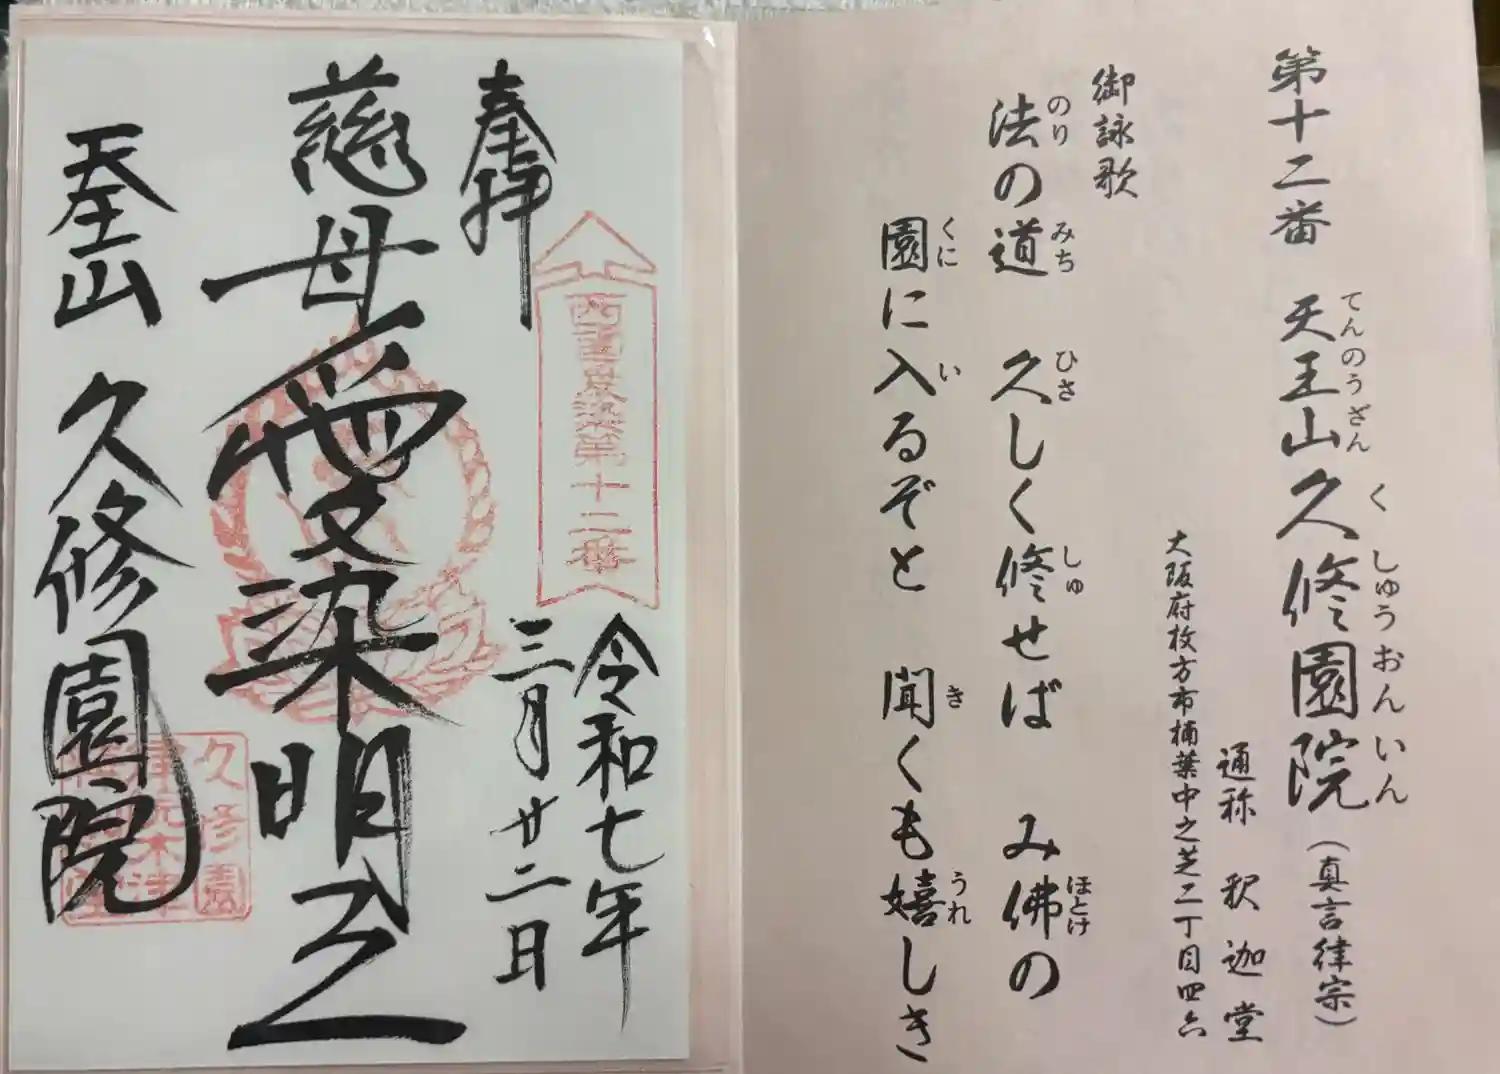 第十二番 天王山久修園院（真言律宗）
てんのうざん
く しゅうおんいん
通称 釈迦堂
大阪府枚方市楠葉中之芝二丁目四六
御詠歌
法の道 久しく修せば み佛の
のり みち ひさ しゅ ほとけ
園に入るぞと 聞くも嬉しき
くに い き うれ
奉拝
西国愛染第十二番
令和七年
三月廿二日
慈母愛染明王
天王山 久修園院
久修園